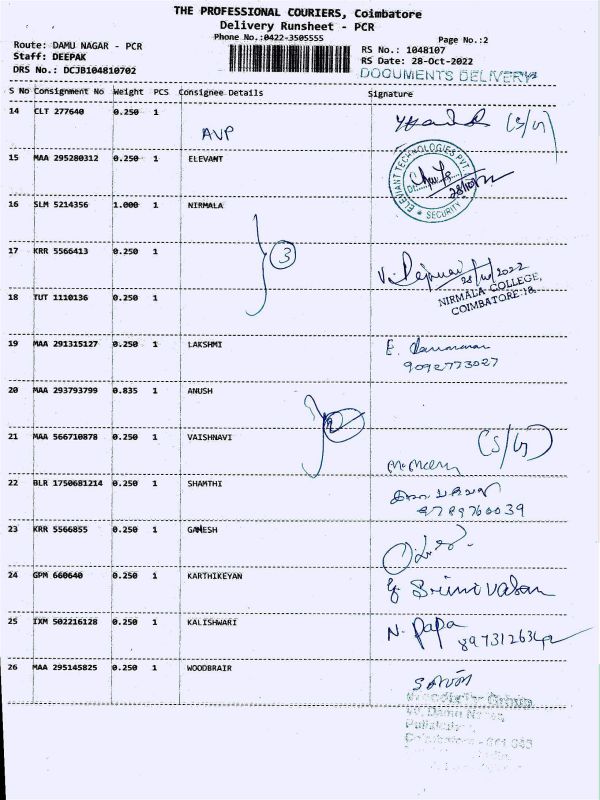 THE PROFESSIONAL COURIERS, Coimbatore
Delivery Runsheet - PCR
Phone No.:0422-3505555
Page No.:2
Route: DAMU NAGAR - PCR
RS No.: 1048107
Staff: DEEPAK
RS Date: 28-Oct-2022
DRS No.: DCJB104810702
DOCUMENTS DELIVERY
S No Consignment No Weight PCS Consignee Details Signature
14 CLT 277640 0.250 1
AVP (S/G)
15 MAA 295280312 0.250 1 ELEVANT
SECURITY
16 SLM 5214356 1.000 1 NIRMALA
3
17 KRR 5566413 0.250 1
28/10/2022
NIRMALA COLLEGE,
COIMBATORE-18.
18 TUT 1110136 0.250 1
19 MAA 291315127 0.250 1 LAKSHMI
9092773027
20 MAA 293793799 0.835 1 ANUSH
2
21 MAA 566710878 0.250 1 VAISHNAVI (S/G)
22 BLR 1750681214 0.250 1 SHAMTHI
9789760039
23 KRR 5566855 0.250 1 GANESH
24 GPM 660640 0.250 1 KARTHIKEYAN
Srinivasan
25 IXM 502216128 0.250 1 KALISHWARI
N. Papa
26 MAA 295145825 0.250 1 WOODBRAIR